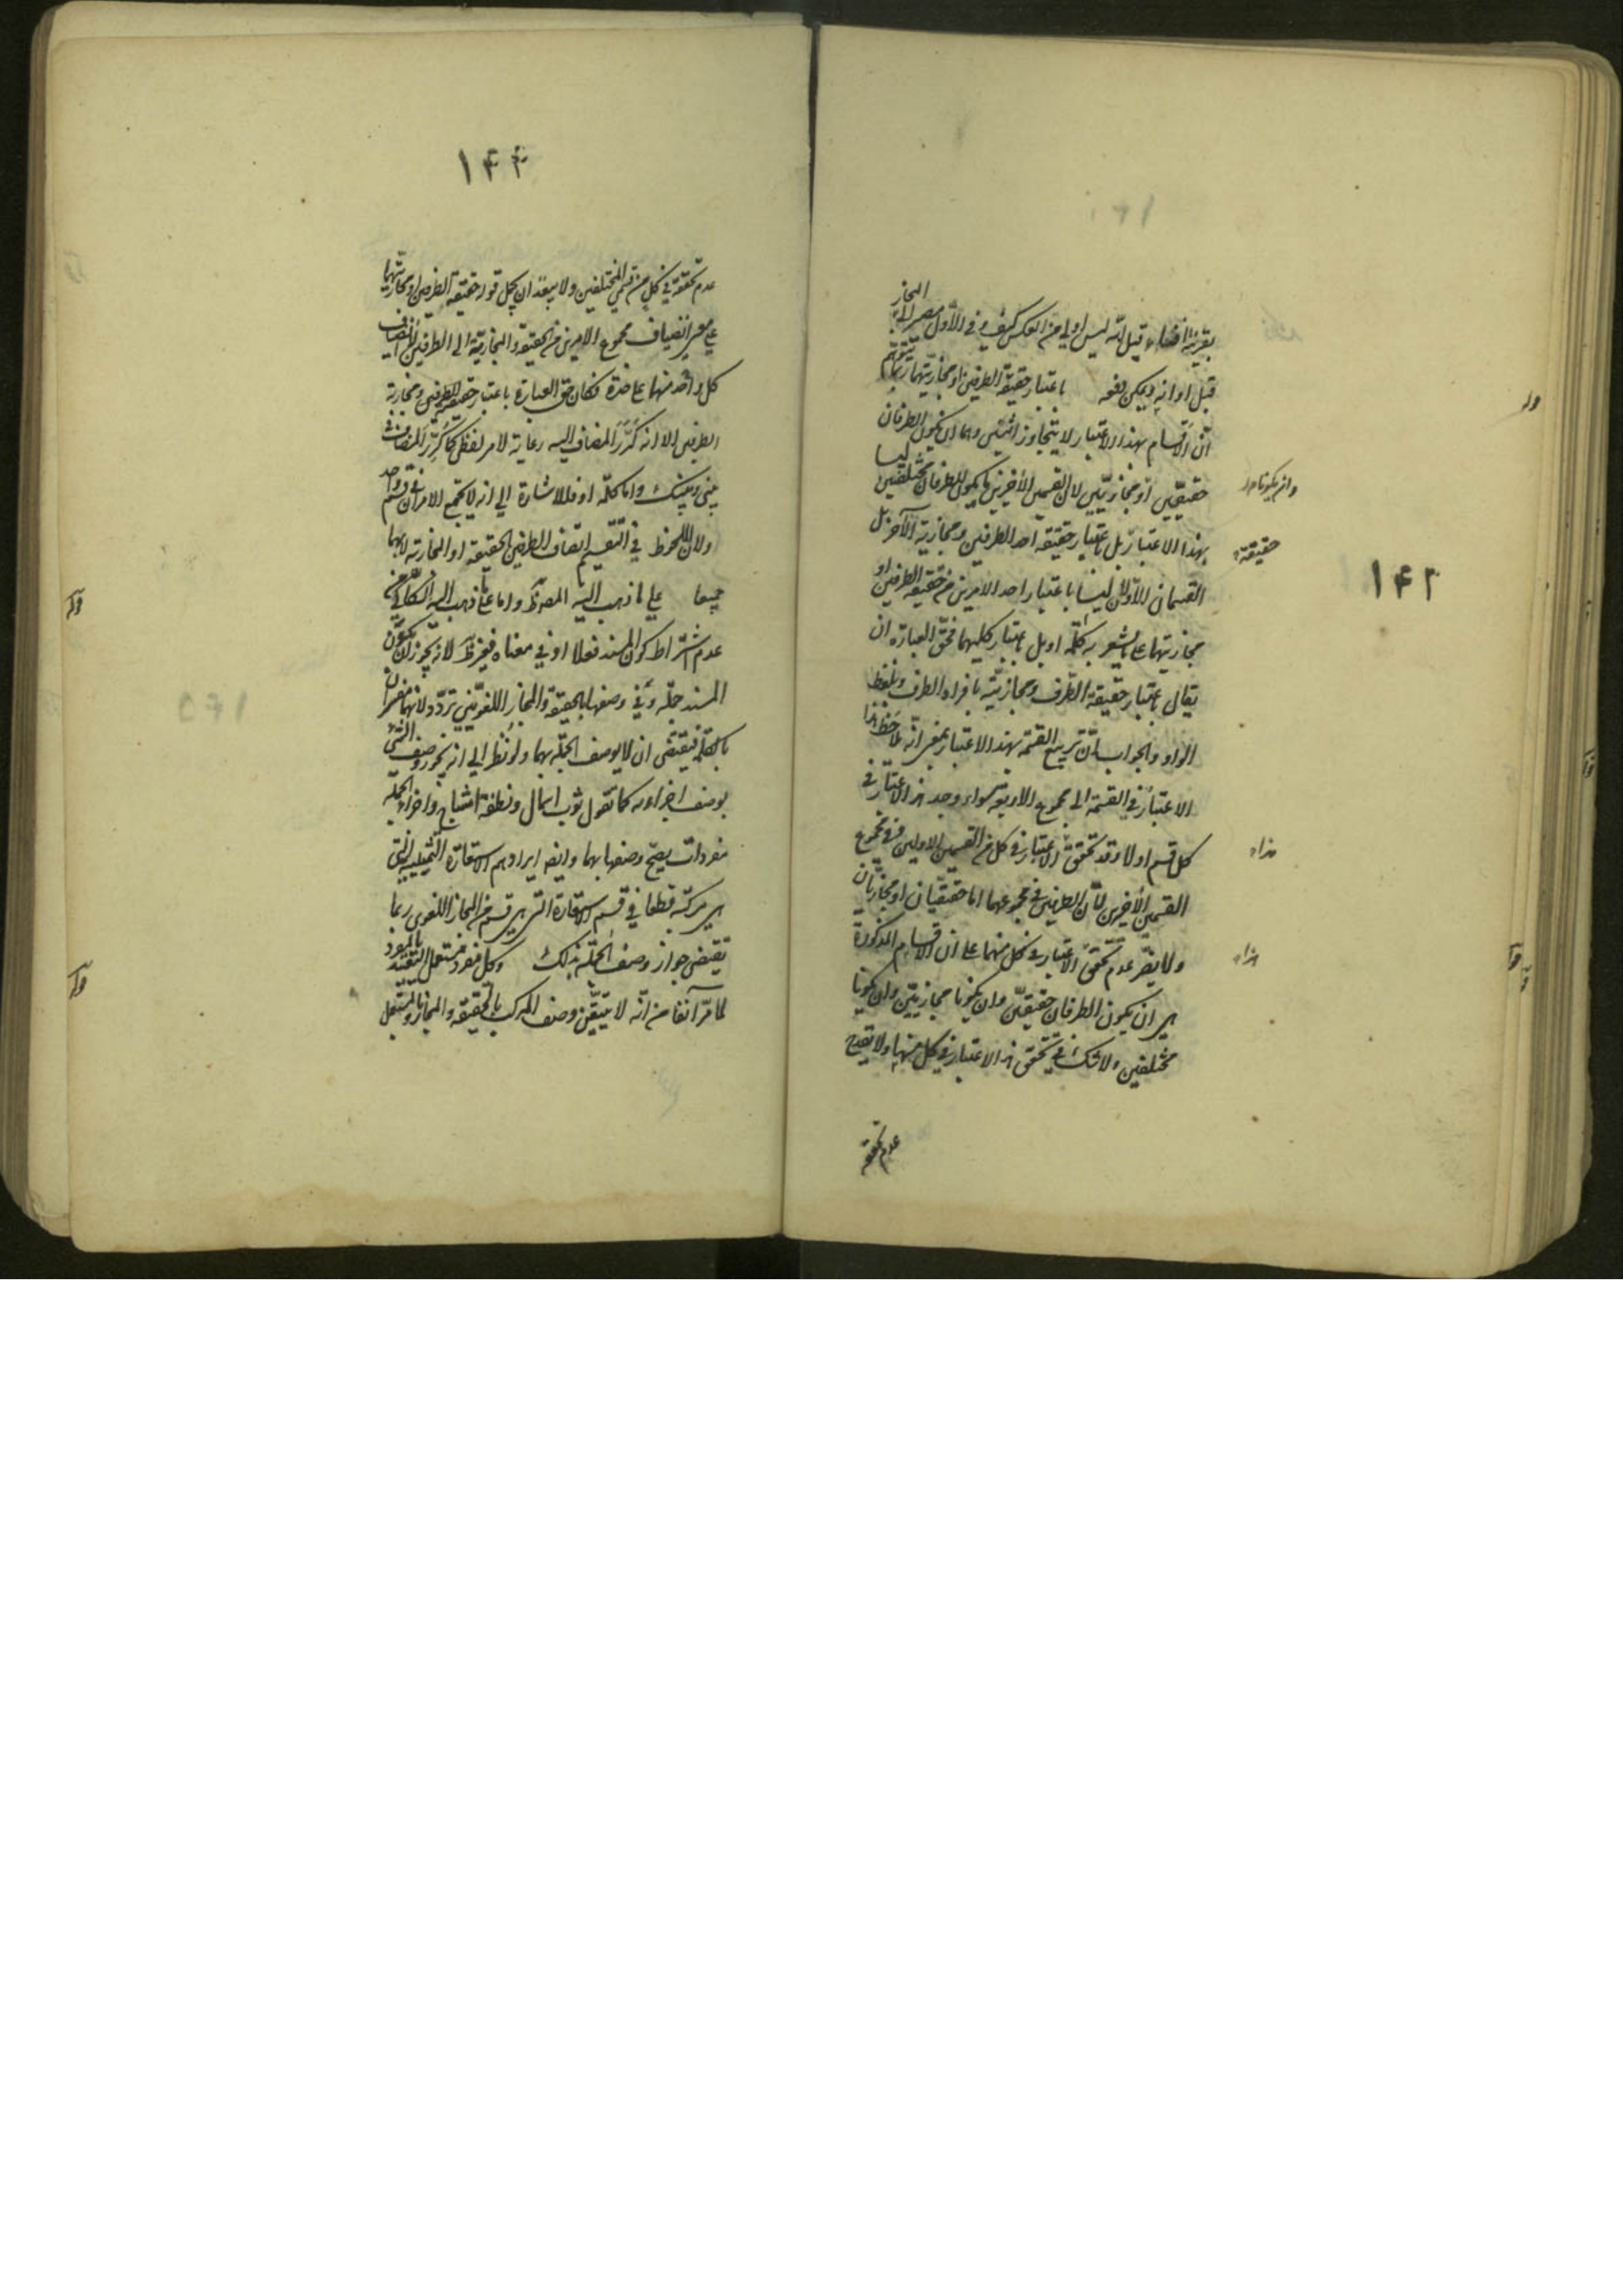 ١٤٢
المجاز
بقرينة اقتضاء قيل انه ليس اولى من العكس كيف وفي الاول مصير الى
قبل اوانه ويمكن دفعه باعتبار حقيقة الطرفين او مجازيتهما ربما يتوهم
ان الاقسام بهذا الاعتبار لا يتجاوز اثنين وهما ان يكون الطرفان
حقيقيين او مجازيين لان القسمين الاخيرين ما يكون الطرفان مختلفين ليسا
وان يكونا
بهذا الاعتبار بل باعتبار حقيقة احد الطرفين ومجازية الآخر بل
حقيقة
القسمان الاولان ليسا باعتبار احد الامرين من حقيقة الطرفين او
مجازيتهما على ما يشعر به كلمة او بل باعتبار كليهما فحق العبارة ان
يقال باعتبار حقيقة الطرف ومجازيته بافراد الطرف وبلفظ
الواو والجواب ان تربيع القسمة بهذا الاعتبار بمعنى انه لاحظ هذا
الاعتبار في القسمة الى مجموع الاربعة سواء وجد هذا الاعتبار في
كل قسم اولا وقد تحقق الاعتبار في كل من القسمين الاولين وفي مجموع
هذا
القسمين الاخيرين لان الطرفين في مجموعهما اما حقيقيان او مجازيان
ولا يضر عدم تحقق الاعتبار في كل منهما على ان الاقسام المذكورة
هذا
هي ان يكون الطرفان حقيقيين وان يكونا مجازيين وان يكونا
مختلفين ولا شك في تحقق هذا الاعتبار في كل منها ولا يقدح
عدم تحققه
١٤٤
عدم تحققه في كل من قسمي المختلفين ولا يبعد ان يحمل قوله حقيقة الطرفين او مجازيتهما
على معنى انضياف مجموع الامرين من الحقيقة والمجازية الى الطرفين لا انضياف
كل واحد منهما على حدة فكان حق العبارة باعتبار حقيقة الطرفين ومجازية
الطرفين الا انه كرر المضاف اليه رعاية لامر لفظي كما كرر المضاف في
بيني وبينك واما كلمة او فللاشارة الى انه لا يجتمع الامران في قسم واحد
ولان الملحوظ في التقسيم اتصاف الطرفين بالحقيقة او المجازية لا بهما
جميعا على ما ذهب اليه المصنف واما على ما ذهب اليه السكاكي من
عدم اشتراط كون المسند فعلا او في معناه فغير ظ لانه يجوز ان يكون
المسند جملة وفي وصفها بالحقيقة والمجاز اللغويين تردد لانهما مفسران
بالكلمة فيقتضى ان لا يوصف الجملة بهما ولو نظر الى انه يجوز وصف الشئ
بوصف اجزاءه كما تقول ثوب اسمال ونطفة امشاج واجزاء الجملة
مفردات يصح وصفها بهما وايضا ايرادهم الاستعارة التمثيلية التي
هي مركبة قطعا في قسم الاستعارة التي هي قسم من المجاز اللغوي ربما
يقتضى جواز وصف الجملة بذلك وكل مفرد مستعمل التقييد بالمفرد
لما مر آنفا من انه لا يتيقن وصف المركب بالحقيقة والمجاز وبالمستعمل